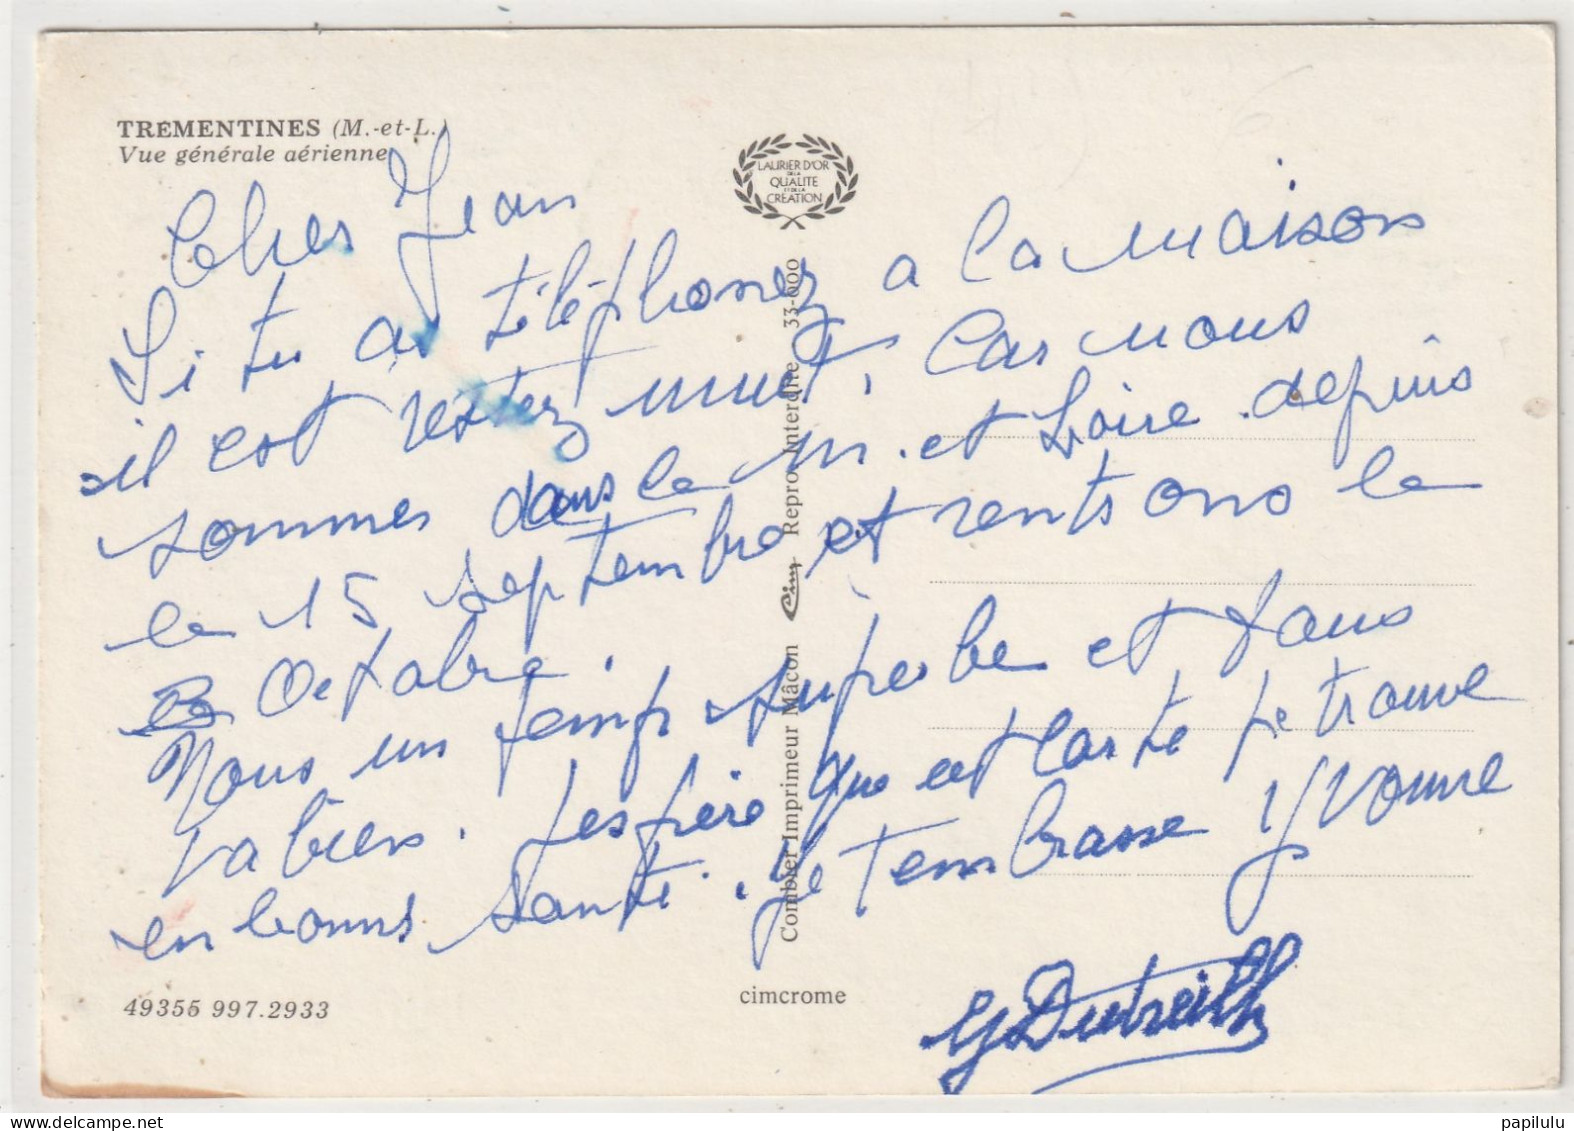 TREMENTINES (M.-et-L.)
Vue générale aérienne
LAURIER D'OR
DE LA
QUALITE
ET DE LA
CREATION
Cher Jean
Si tu as téléphonez a la maison
il est restez muet, Car nous
sommes dans le M. et Loire depuis
le 15 septembre et rentrons le
Octobre.
Nous un temp superbe et tous
va bien. Jespère que cet carte te trouve
en bonne santé. Je tembrasse Yvonne
Y Dutreilh
Combier Imprimeur Mâcon Cim Repro. Interdite 33-000
49356 997.2933
cimcrome
papilulu